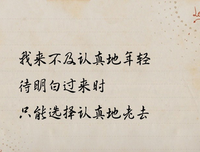 我来不及认真地年轻
待明白过来时
只能选择认真地老去